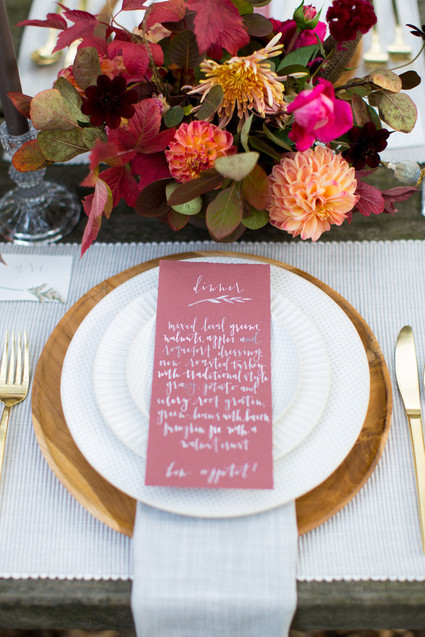 dinner
mixed local greens,
walnuts, apples and
roquefort dressing,
oven roasted turkey
with traditional style
gravy, potato and
celery root gratin,
green beans with bacon
pumpkin pie with a
walnut crust
bon appetit!